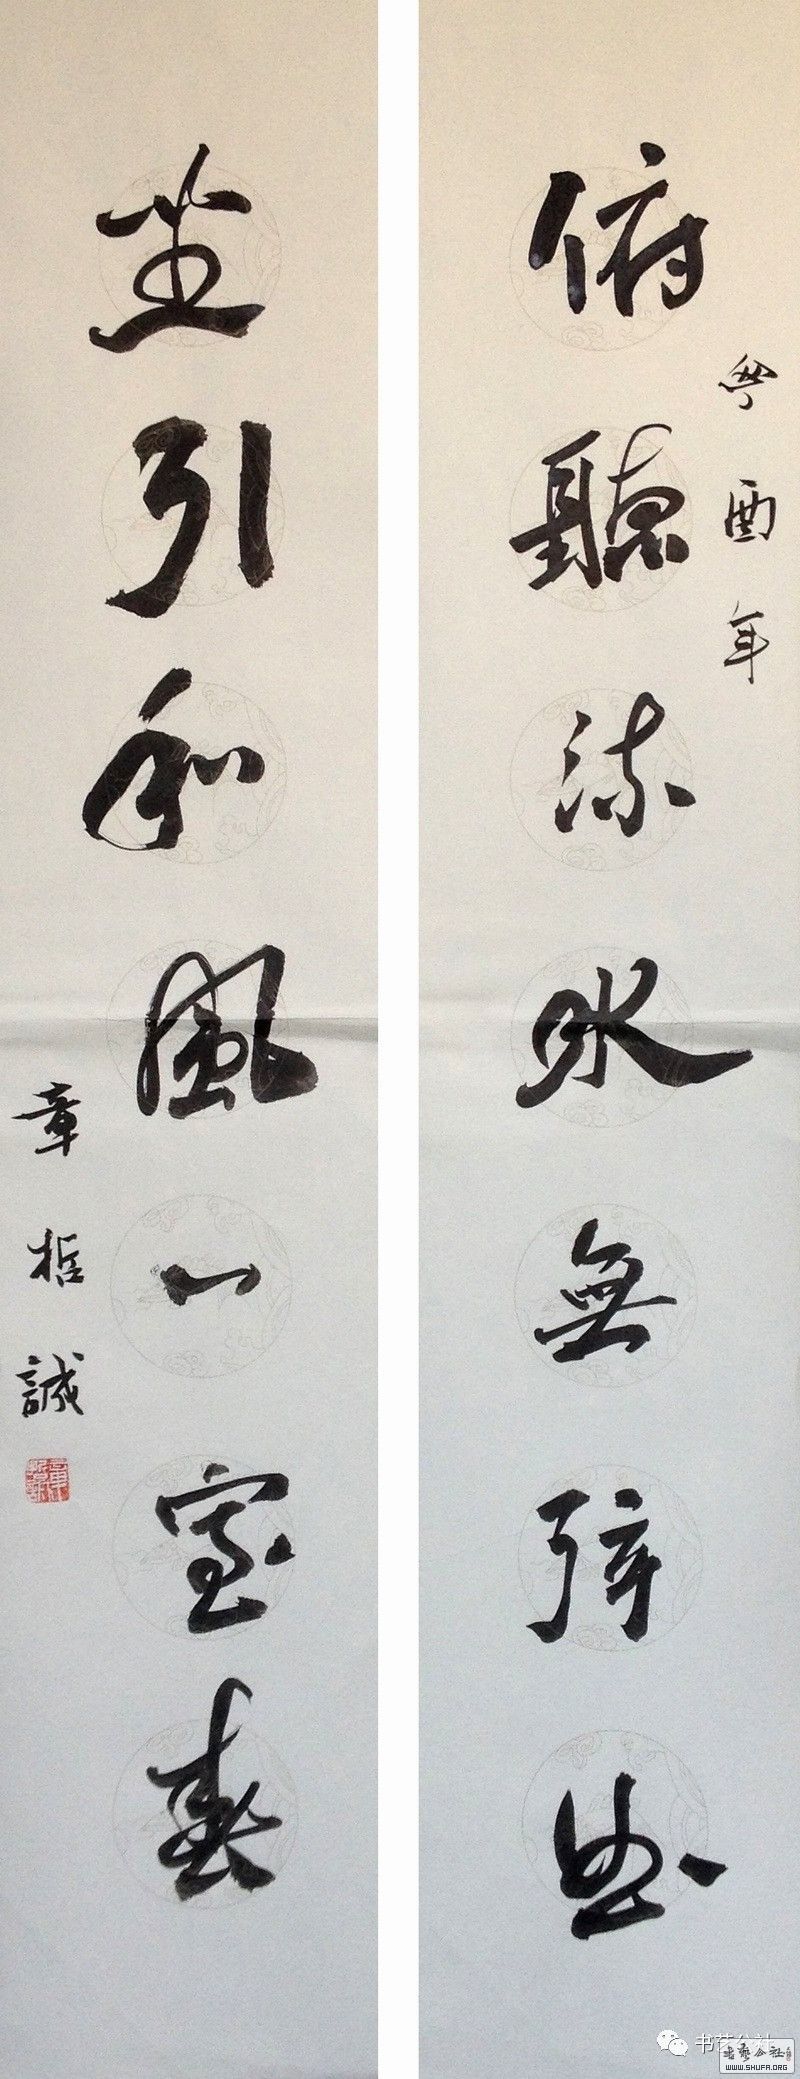 俯聽流水無弦曲
酉年
坐引和風一室春
章哲誠
书艺公社
书艺公社
WWW.SHUFA.ORG